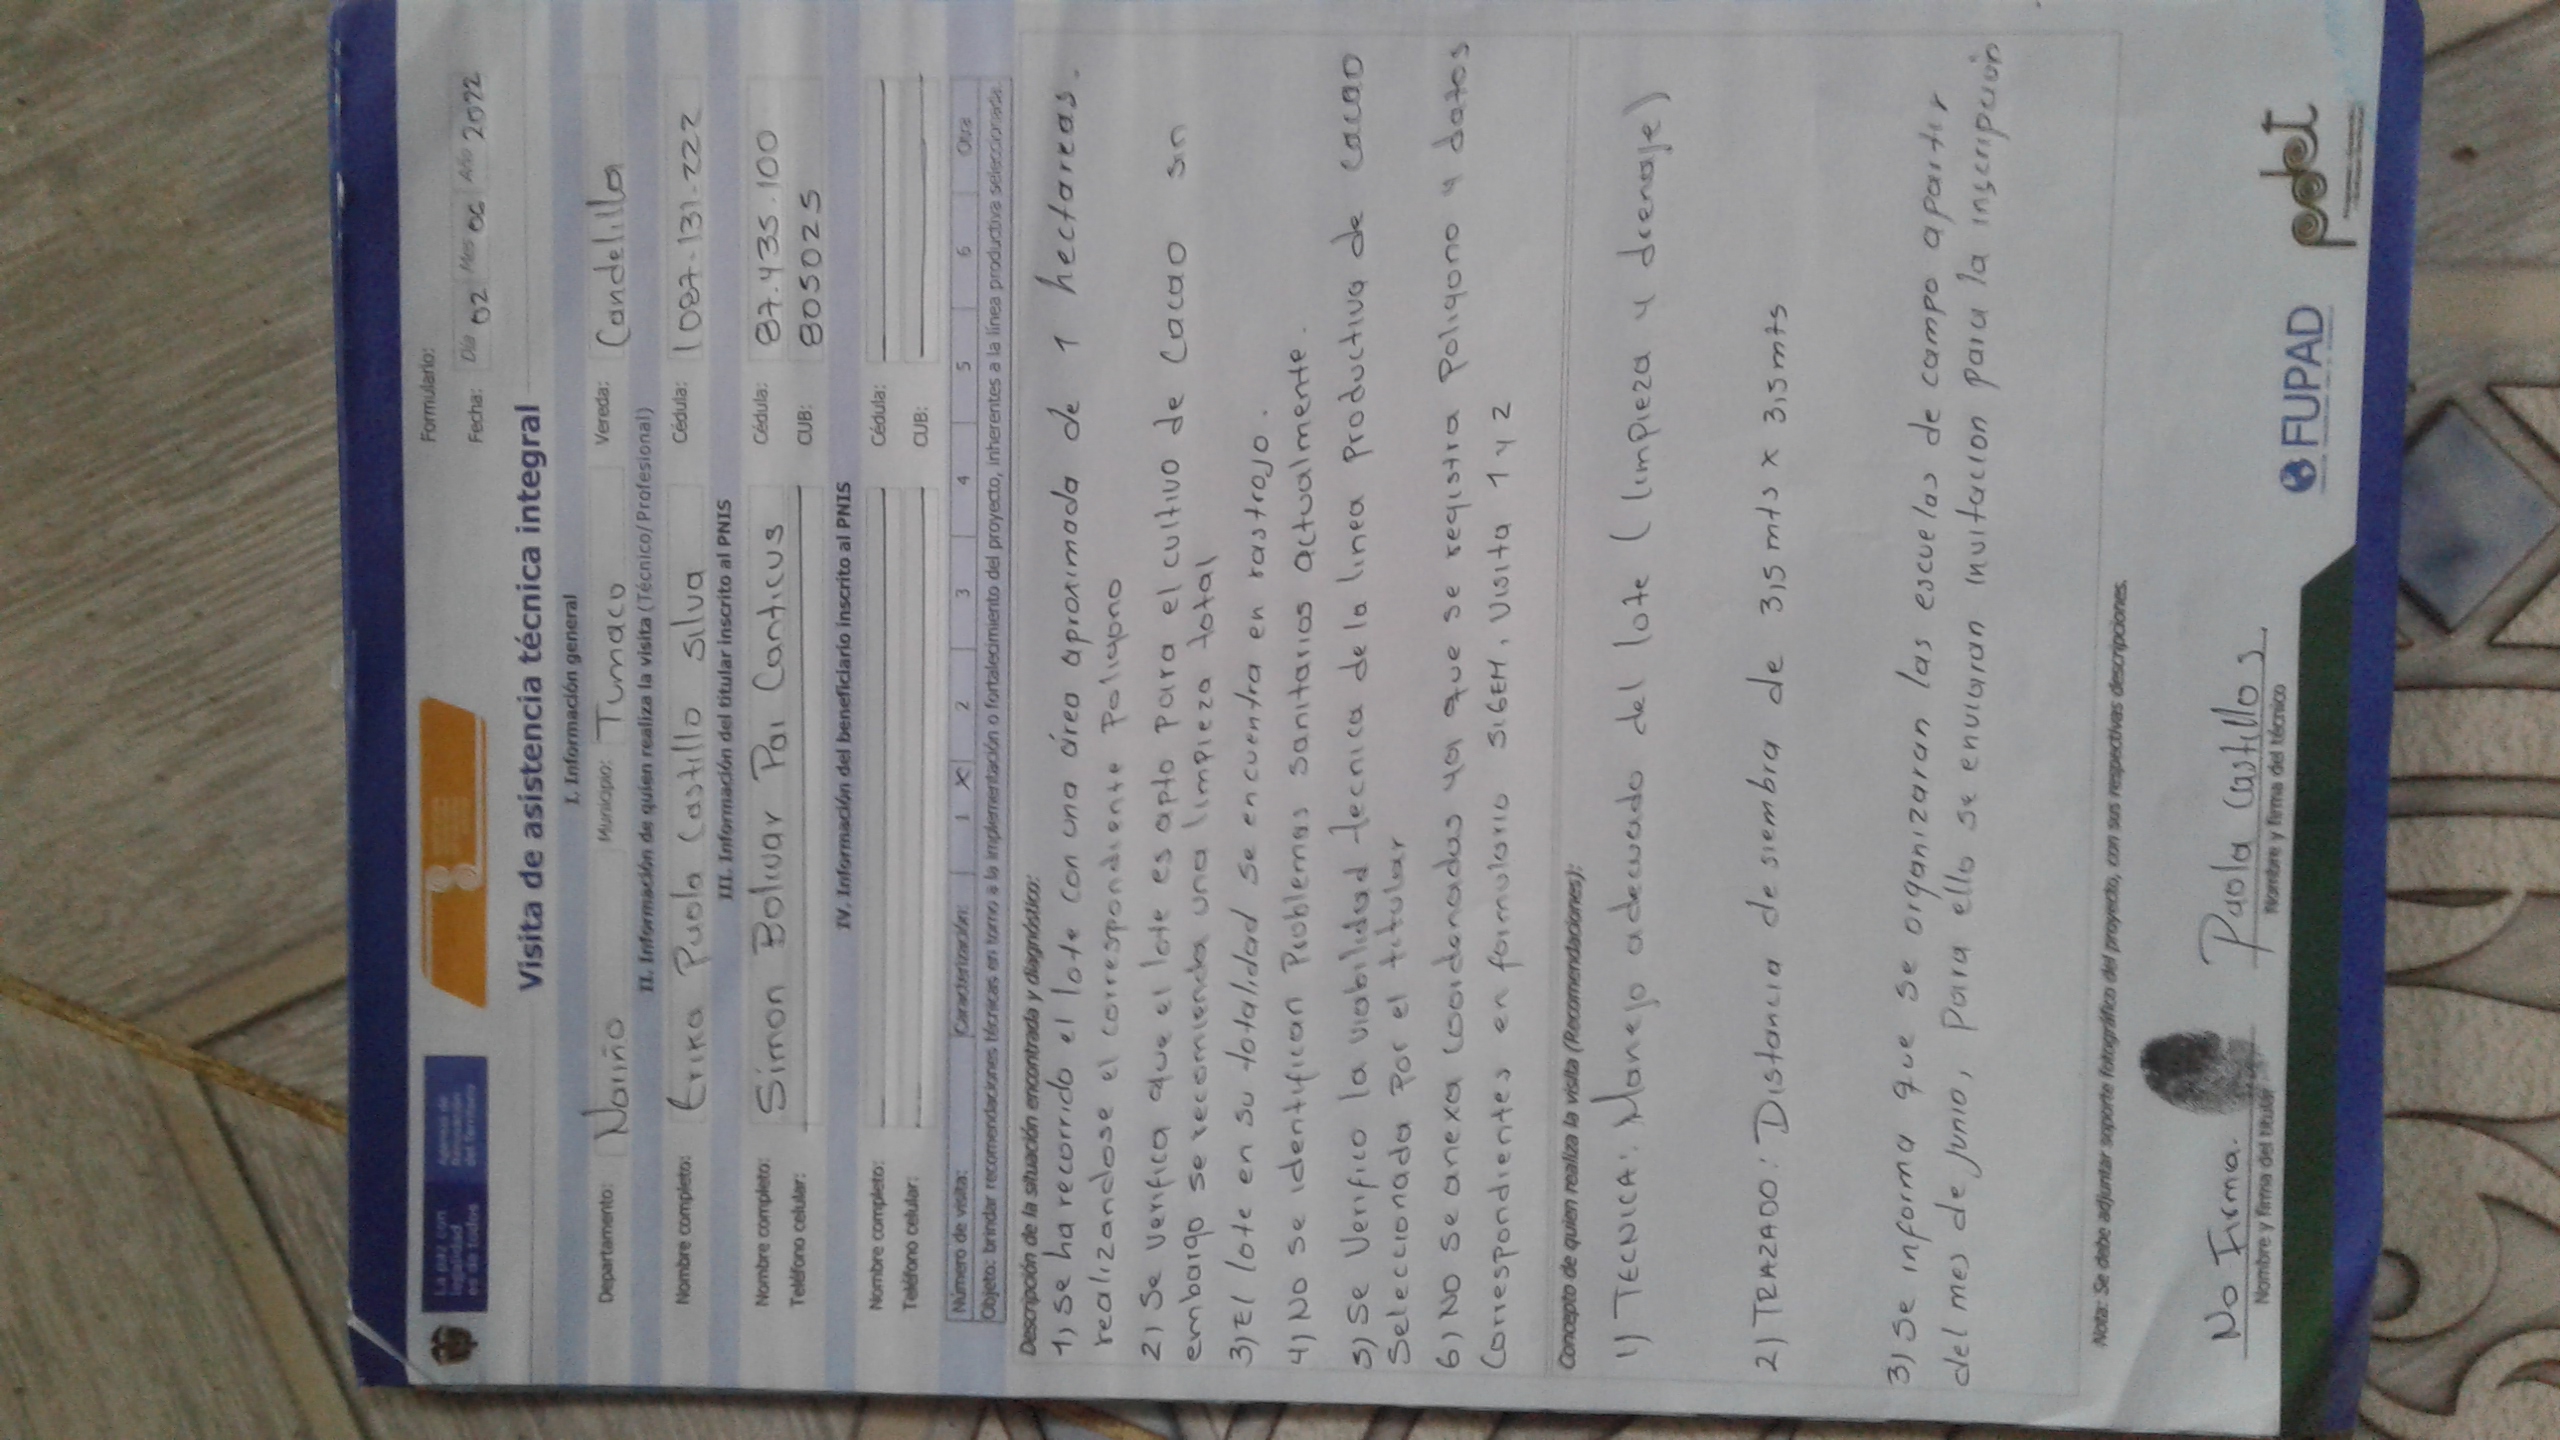 La paz con
legalidad
es de todos
Agencia de
Renovación
del Territorio
Formulario:
Fecha: Día 02 Mes 06 Año 2022
Visita de asistencia técnica integral
I. Información general
Departamento: Nariño Municipio: Tumaco Vereda: Candelillo
II. Información de quien realiza la visita (Técnico/ Profesional)
Nombre completo: Erika Puola Castillo Silva Cédula: 1087.131.222
III. Información del titular inscrito al PNIS
Nombre completo: Simon Bolivar Pai Canticus Cédula: 87.435.100
Teléfono celular: CUB: 805025
IV. Información del beneficiario inscrito al PNIS
Nombre completo: Cédula:
Teléfono celular: CUB:
Número de visita: Caracterización: 1 X 2 3 4 5 6 Otra
Objeto: brindar recomendaciones técnicas en torno a la implementación o fortalecimiento del proyecto, inherentes a la línea productiva seleccionada.
Descripción de la situación encontrada y diagnóstico:
1) Se ha recorrido el lote con una área aproximada de 1 hectareas.
realizandose el correspondiente Poligono
2) Se verifica que el lote es apto para el cultivo de Cacao sin
embargo se recomienda una limpieza total
3) El lote en su totalidad se encuentra en rastrojo.
4) No se identifican Problemas sanitarios actualmente.
5) Se Verifico la viabilidad tecnica de la linea Productiva de Cacao
Seleccionada Por el titular
6) No se anexa coordenadas ya que se registra Poligono y datos
Correspondientes en formulario SIGEM, Visita 1 y 2
Concepto de quien realiza la visita (Recomendaciones):
1) TECNICA: Manejo adecuado del lote ( limpieza y drenaje)
2) TRAZADO: Distancia de siembra de 3,5 mts x 3,5 mts
3) Se informa que se organizaran las escuelas de campo apartir
del mes de junio, para ello se enviaran invitacion para la inscripción
Nota: Se debe adjuntar soporte fotográfico del proyecto, con sus respectivas descripciones.
No Firma. Paola Castillo s
Nombre y firma del titular Nombre y firma del técnico
FUPAD
pdet